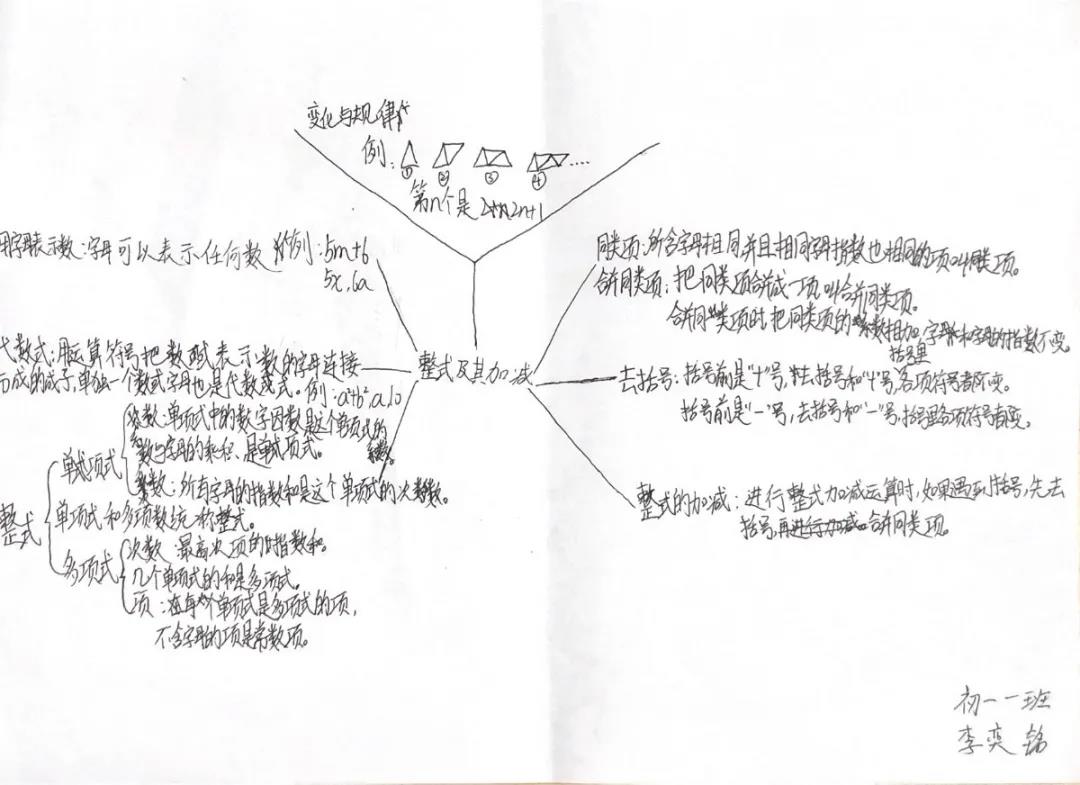 变化与规律
例:
① ② ③ ④ ....
第n个是2n+1
用字母表示数:字母可以表示任何数 例:5m+6
5x,6a
代数式:用运算符号把数或表示数的字母连接
而成的式子,单独一个数或字母也是代数式.例:a²+b²,a,10
整式
单项式
系数:单项式中的数字因数是这个单项式的
系数。
数与字母的乘积、是单项式。
次数:所有字母的指数和是这个单项式的次数。
单项式和多项数统称整式。
多项式
次数 最高次项的指数和.
几个单项式的和是多项式。
项:在每个单项式是多项式的项,
不含字母的项是常数项。
整式及其加减
同类项:所含字母相同并且相同字母指数也相同的项叫同类项。
合并同类项:把同类项合并成一项叫合并同类项。
合并同类项时,把同类项的系数相加,字母和字母的指数不变。
括号里
去括号:括号前是"+"号,去括号和"+"号,各项符号都不变。
括号前是"-"号,去括号和"-"号,括号里各项符号都变。
整式的加减:进行整式加减运算时,如果遇到括号,先去
括号,再进行加减。合并同类项。
初一一班
李奕铭